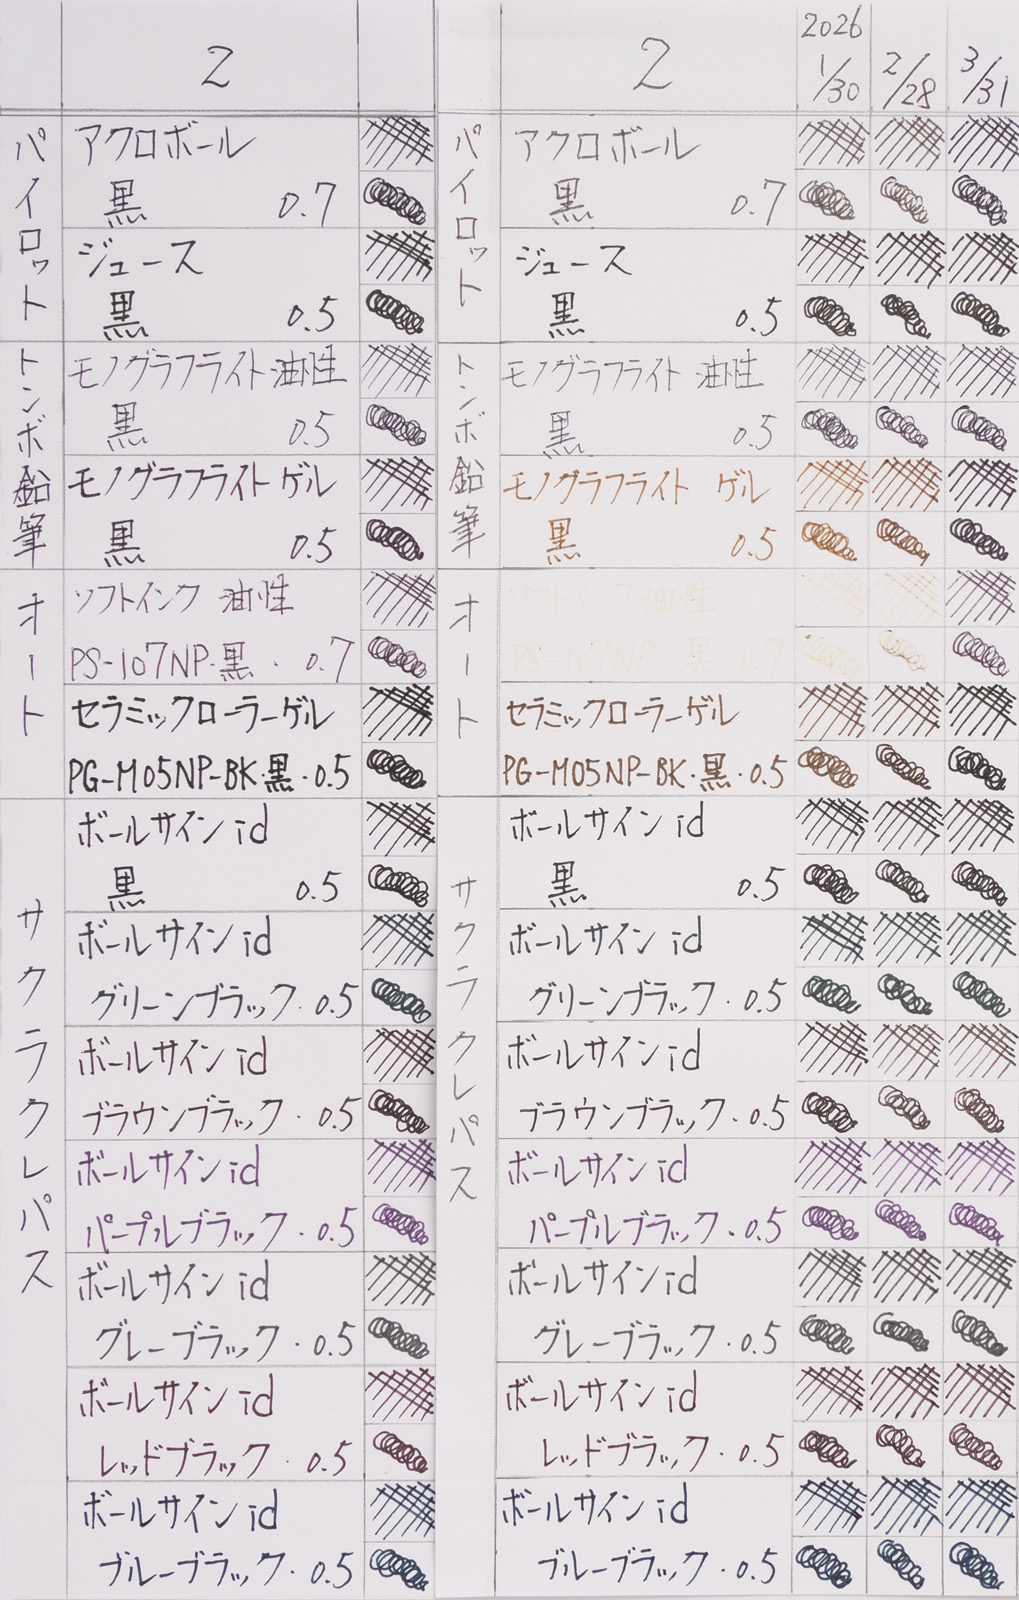 2
パイロット
アクロボール
黒 0.7
ジュース
黒 0.5
トンボ鉛筆
モノグラフライト油性
黒 0.5
モノグラフライト ゲル
黒 0.5
オート
ソフトインク 油性
PS-107NP・黒・0.7
セラミックローラーゲル
PG-M05NP-BK・黒・0.5
サクラクレパス
ボールサイン id
黒 0.5
ボールサイン id
グリーンブラック・0.5
ボールサイン id
ブラウンブラック・0.5
ボールサイン id
パープルブラック・0.5
ボールサイン id
グレーブラック・0.5
ボールサイン id
レッドブラック・0.5
ボールサイン id
ブルーブラック・0.5
2
2026
1/30 2/28 3/31
パイロット
アクロボール
黒 0.7
ジュース
黒 0.5
トンボ鉛筆
モノグラフライト 油性
黒 0.5
モノグラフライト ゲル
黒 0.5
オート
ソフトインク 油性
PS-107NP 黒・0.7
セラミックローラーゲル
PG-M05NP-BK・黒・0.5
サクラクレパス
ボールサイン id
黒 0.5
ボールサイン id
グリーンブラック・0.5
ボールサイン id
ブラウンブラック・0.5
ボールサイン id
パープルブラック・0.5
ボールサイン id
グレーブラック・0.5
ボールサイン id
レッドブラック・0.5
ボールサイン id
ブルーブラック・0.5